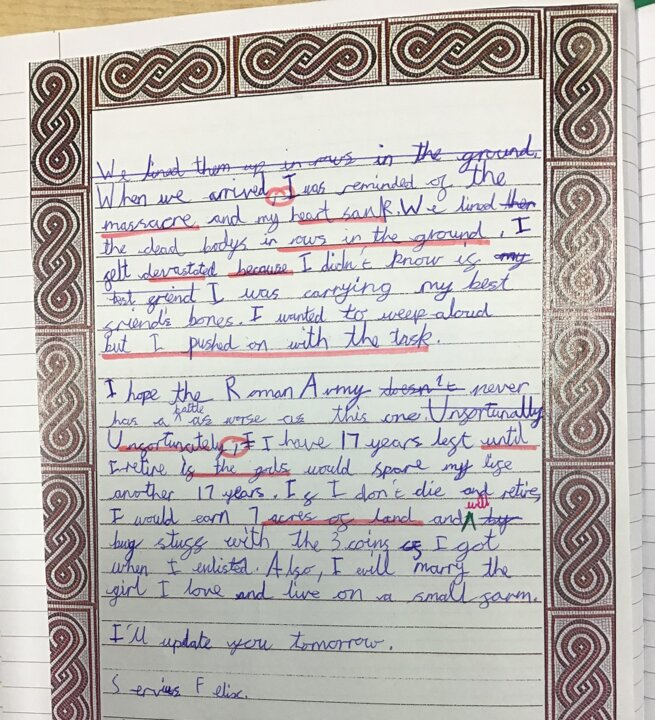 We lined them up in rows in the ground.
When we arrived, I was reminded of the
massacre and my heart sank. We lined them
the dead bodys in rows in the ground. I
felt devastated because I didn't know if my
best friend I was carrying my best
friend's bones. I wanted to weep aloud
but I pushed on with the task.
I hope the Roman Army doesn't never
has a battle as worse as this one. Unfortunally
Unfortunately, I I have 17 years left until
I retire if the gods would spare my life
another 17 years. If I don't die and retire,
I would earn 7 acres of land and will by
buy stuff with the 3 coins of I got
when I enlisted. Also, I will marry the
girl I love and live on a small farm.
I'll update you tomorrow.
Servius Felix.